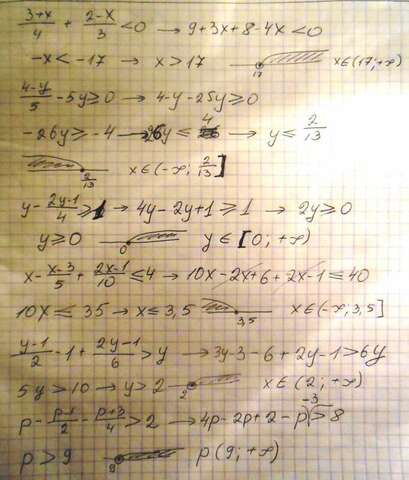 (3+x)/4 + (2-x)/3 < 0 → 9+3x+8-4x<0
-x < -17 → x > 17 17 x∈(17;+∞)
(4-y)/5 - 5y ≥ 0 → 4-y-25y ≥ 0
-26y ≥ -4 → 26y ≤ 4 → y ≤ 2/13
2/13 x∈(-∞; 2/13]
y - (2y-1)/4 ≥ 1 → 4y-2y+1 ≥ 1 → 2y ≥ 0
y ≥ 0 0 y∈[0;+∞)
x - (x-3)/5 + (2x-1)/10 ≤ 4 → 10x-2x+6+2x-1 ≤ 40
10x ≤ 35 → x ≤ 3,5 3,5 x∈(-∞;3,5]
(y-1)/2 - 1 + (2y-1)/6 > y → 3y-3-6+2y-1 > 6y
5y > 10 → y > 2 2 x∈(2;+∞)
p - (p-1)/2 - (p+3)/4 > 2 → 4p-2p+2-p-3 > 8
p > 9 9 p(9;+∞)